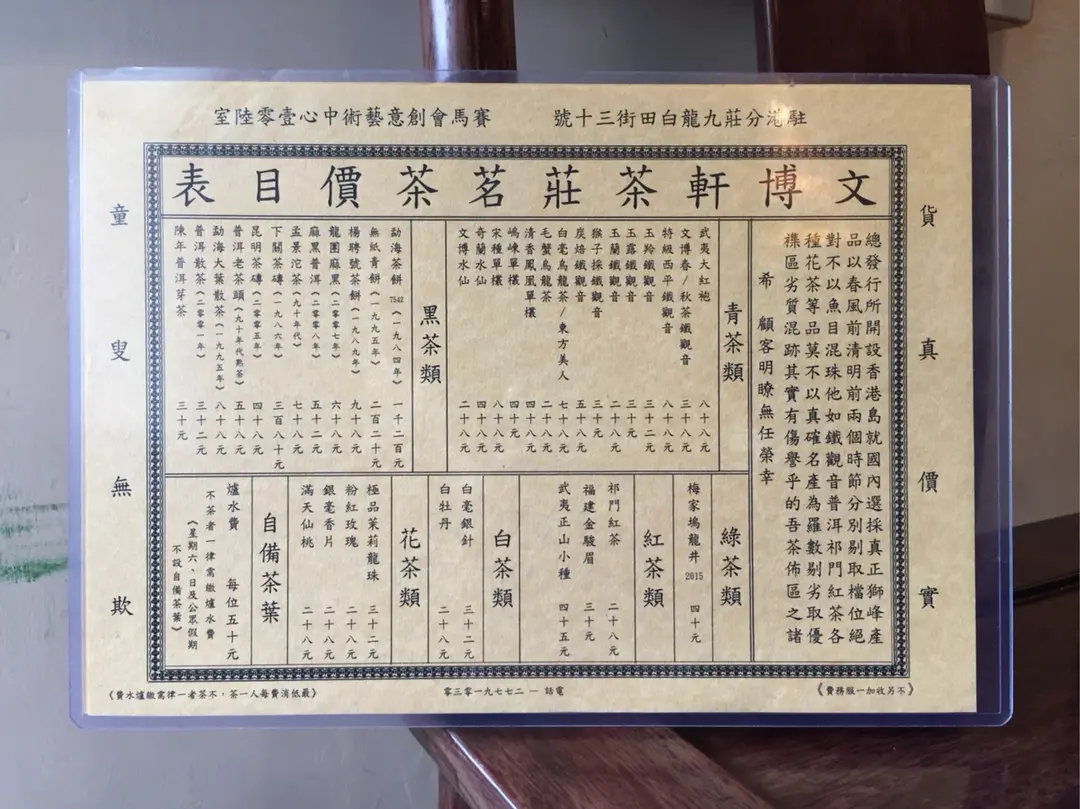 駐港分莊九龍白田街三十號 賽馬會創意藝術中心壹零陸室
文博軒茶莊茗茶價目表
貨真價實
總發行所開設香港島就國內選採真正獅峰產
品以春風前清明前兩個時節分別剔取檔位絕
對不以魚目混珠他如鐵觀音普洱祁門紅茶各
種花茶等品莫不以真確名產為羅數剔劣取優
襍區劣質混跡其實有傷譽乎的吾茶佈區之諸
希 顧客明瞭無任榮幸
青茶類
武夷大紅袍 八十八元
文博春/秋茶鐵觀音 三十八元
特級西平鐵觀音 八十八元
玉羚鐵觀音 三十二元
玉露鐵觀音 三十元
玉蘭鐵觀音 二十八元
猴子採鐵觀音 三十元
炭焙鐵觀音 五十八元
白毫烏龍茶/東方美人 七十八元
毛蟹烏龍茶 二十八元
清香鳳凰單欉 四十八元
嵋崠單欉 四十元
宋種單欉 八十八元
奇蘭水仙 四十八元
文博水仙 二十八元
黑茶類
勐海茶餅7542(一九八四年) 一千二百元
無紙青餅(一九九五年) 二百二十元
楊聘號茶餅(一九八九年) 九十八元
龍團麻黑(二零零七年) 六十八元
麻黑普洱(二零零八年) 五十二元
孟景沱茶(九十年代) 七十八元
下關茶磚(一九八六年) 三百八十元
昆明茶磚(二零零五年) 四十八元
普洱老茶頭(九十年代熟茶) 五十八元
勐海大葉散茶(一九九五年) 八十八元
普洱散茶(二零零一年) 三十二元
陳年普洱芽茶 三十元
綠茶類
梅家塢龍井2015 四十元
紅茶類
祁門紅茶 二十八元
福建金駿眉 三十元
武夷正山小種 四十五元
白茶類
白毫銀針 三十二元
白牡丹 二十八元
花茶類
極品茉莉龍珠 三十二元
粉紅玫瑰 二十八元
銀毫香片 二十八元
滿天仙桃 二十八元
自備茶葉
爐水費 每位五十元
不茶者一律需繳爐水費
《星期六、日及公眾假期
不設自備茶葉》
童叟無欺
《不另收加一服務費》
電話 — 二七七九一零三零
《最低消費每人一茶,不茶者一律需繳爐水費》